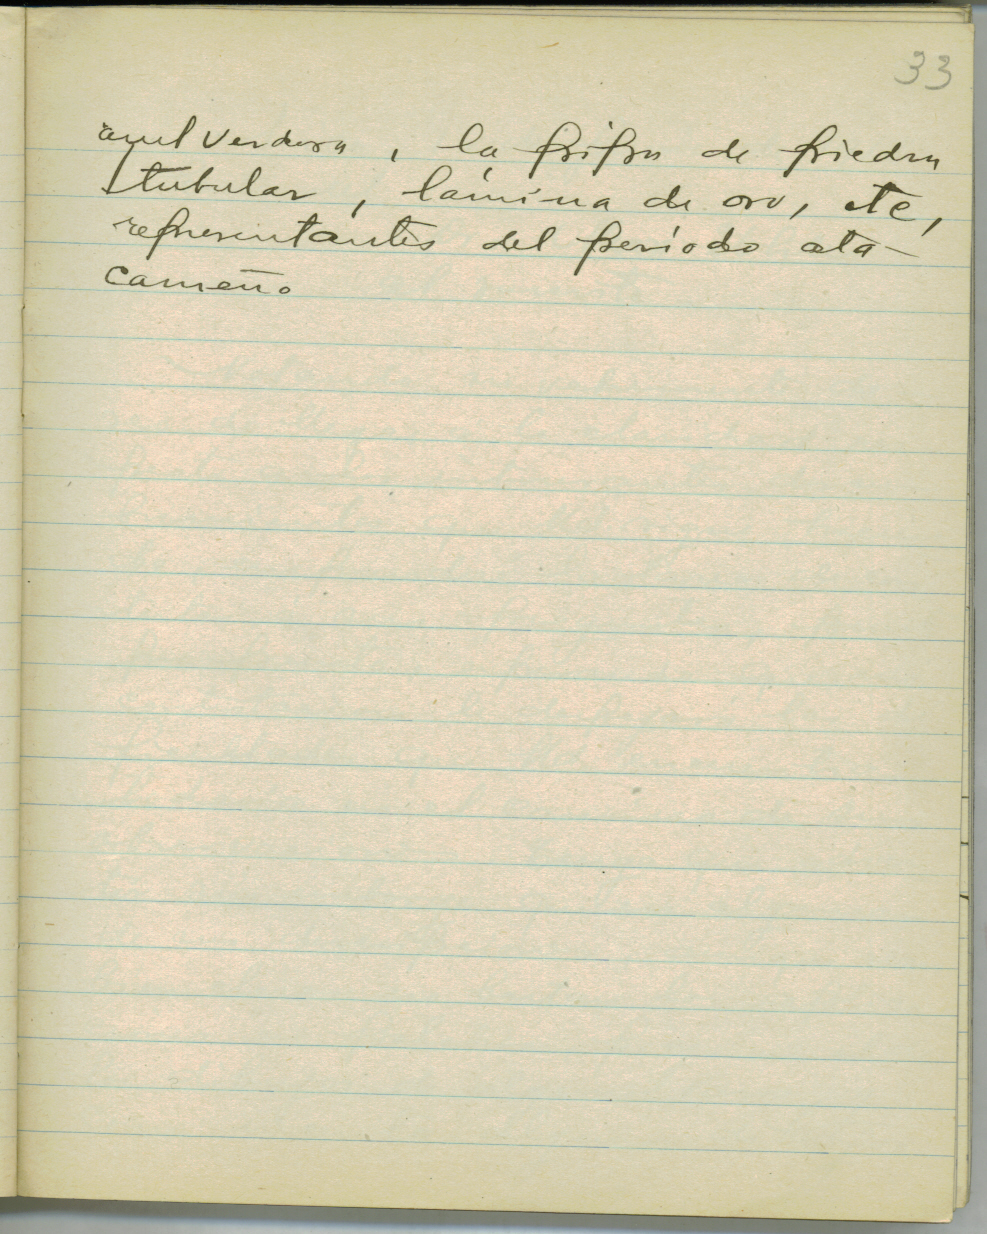 33
azul verdosa, la pipa de piedra
tubular, lámina de oro, etc,
representantes del período ata-
cameño